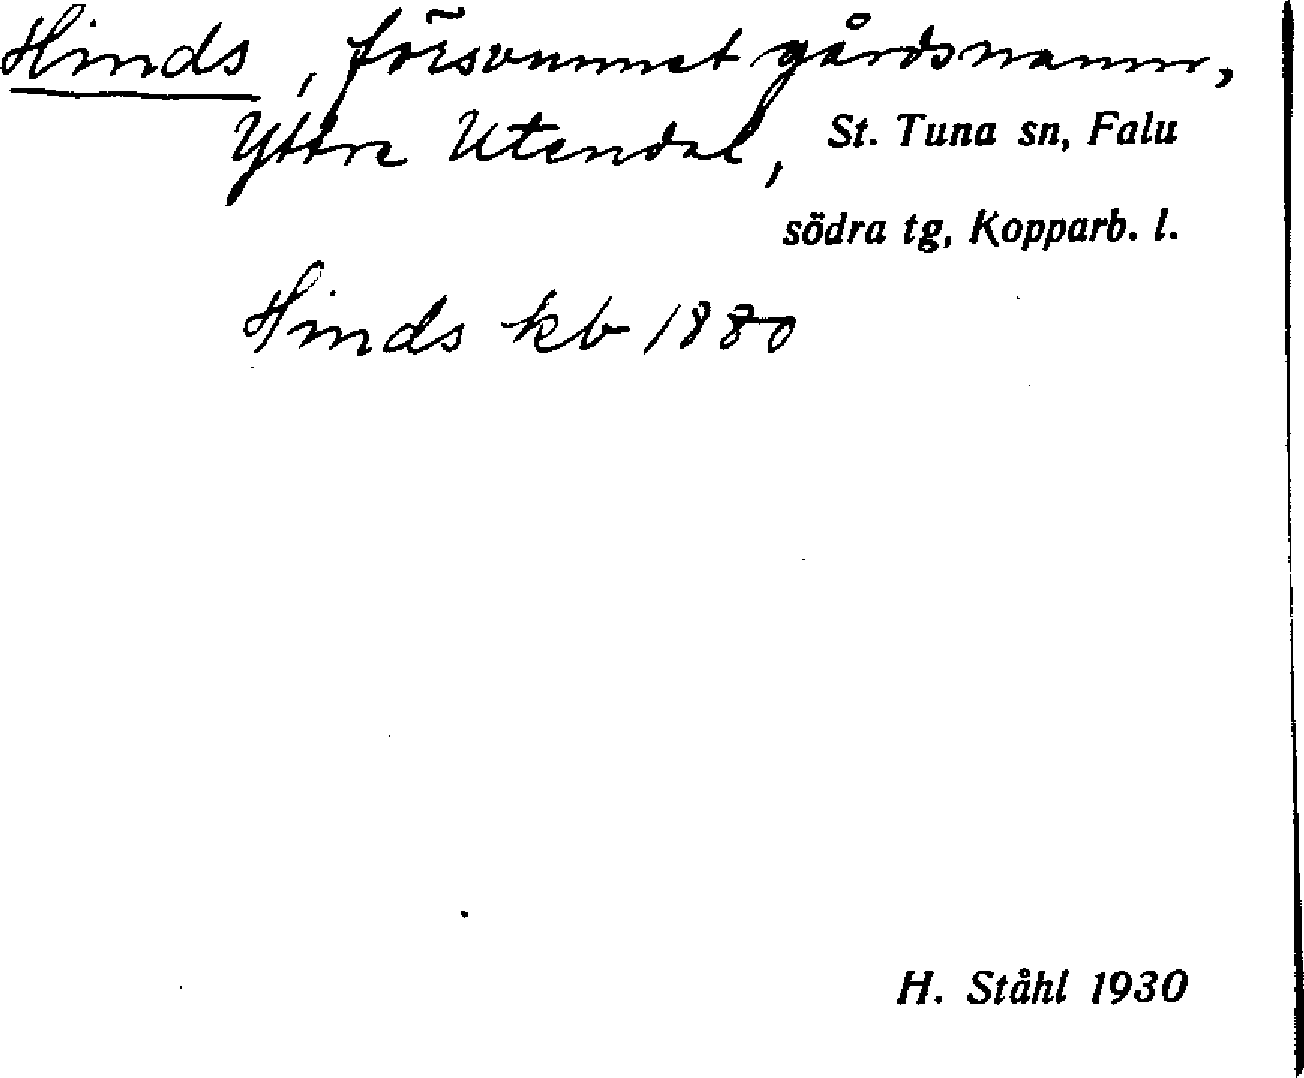 Hinds, försvunnet gårdsnamn,
Yttre Utendal, St. Tuna sn, Falu
södra tg, Kopparb. l.
Hinds kb 1880
H. Ståhl 1930